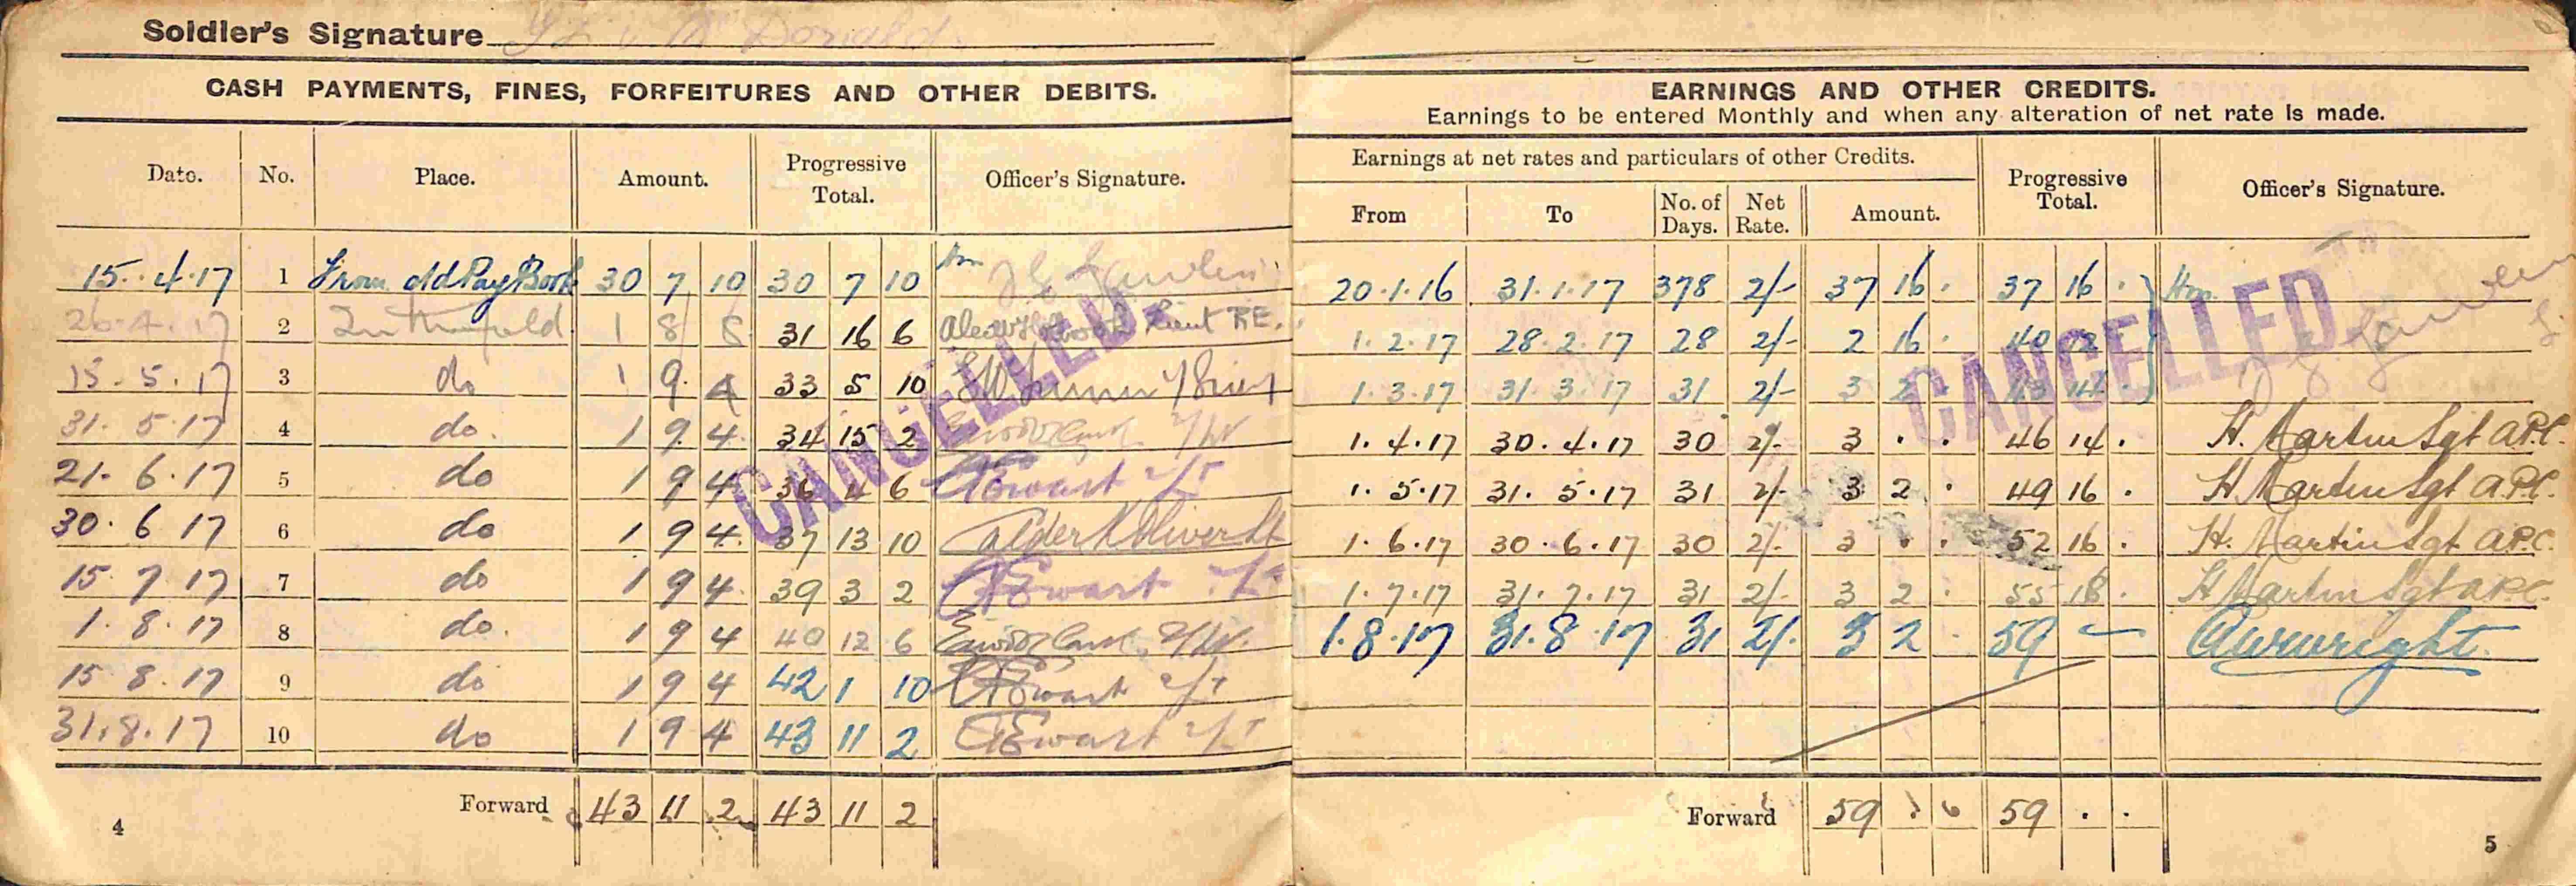 Soldier's Signature Donald
CASH PAYMENTS, FINES, FORFEITURES AND OTHER DEBITS.
Date. No. Place. Amount. Progressive Total. Officer's Signature.
15.4.17 1 From old Pay Book 30 7 10 30 7 10
26.4.17 2 1 8 8 31 16 6 Lieut RE.
15.5.17 3 do 1 9 4 33 5 10
31.5.17 4 do. 1 9 4 34 15 2
21.6.17 5 do 1 9 4 36 4 6 Ewart
30.6.17 6 do 1 9 4 37 13 10
15.7.17 7 do 1 9 4 39 3 2 Ewart
1.8.17 8 do. 1 9 4 40 12 6
15.8.17 9 do 1 9 4 42 1 10 Ewart
31.8.17 10 do 1 9 4 43 11 2 Ewart
Forward 43 11 2 43 11 2
4
CANCELLED.
EARNINGS AND OTHER CREDITS.
Earnings to be entered Monthly and when any alteration of net rate is made.
Earnings at net rates and particulars of other Credits. Progressive Total. Officer's Signature.
From To No. of Days. Net Rate. Amount.
20.1.16 31.1.17 378 2/- 37 16 . 37 16 .
1.2.17 28.2.17 28 2/- 2 16 . 40 12
1.3.17 31.3.17 31 2/- 3 2 43 14
1.4.17 30.4.17 30 2/- 3 . . 46 14 . H. Martin Sgt APC.
1.5.17 31.5.17 31 2/- 3 2 . 49 16 . H Martin Sgt A.P.C.
1.6.17 30.6.17 30 2/- 3 . . 52 16 . H. Martin Sgt APC.
1.7.17 31.7.17 31 2/- 3 2 . 55 18 . H Martin Sgt APC.
1.8.17 31.8.17 31 2/- 3 2 - 59 -
Forward 59 59 . .
5
CANCELLED